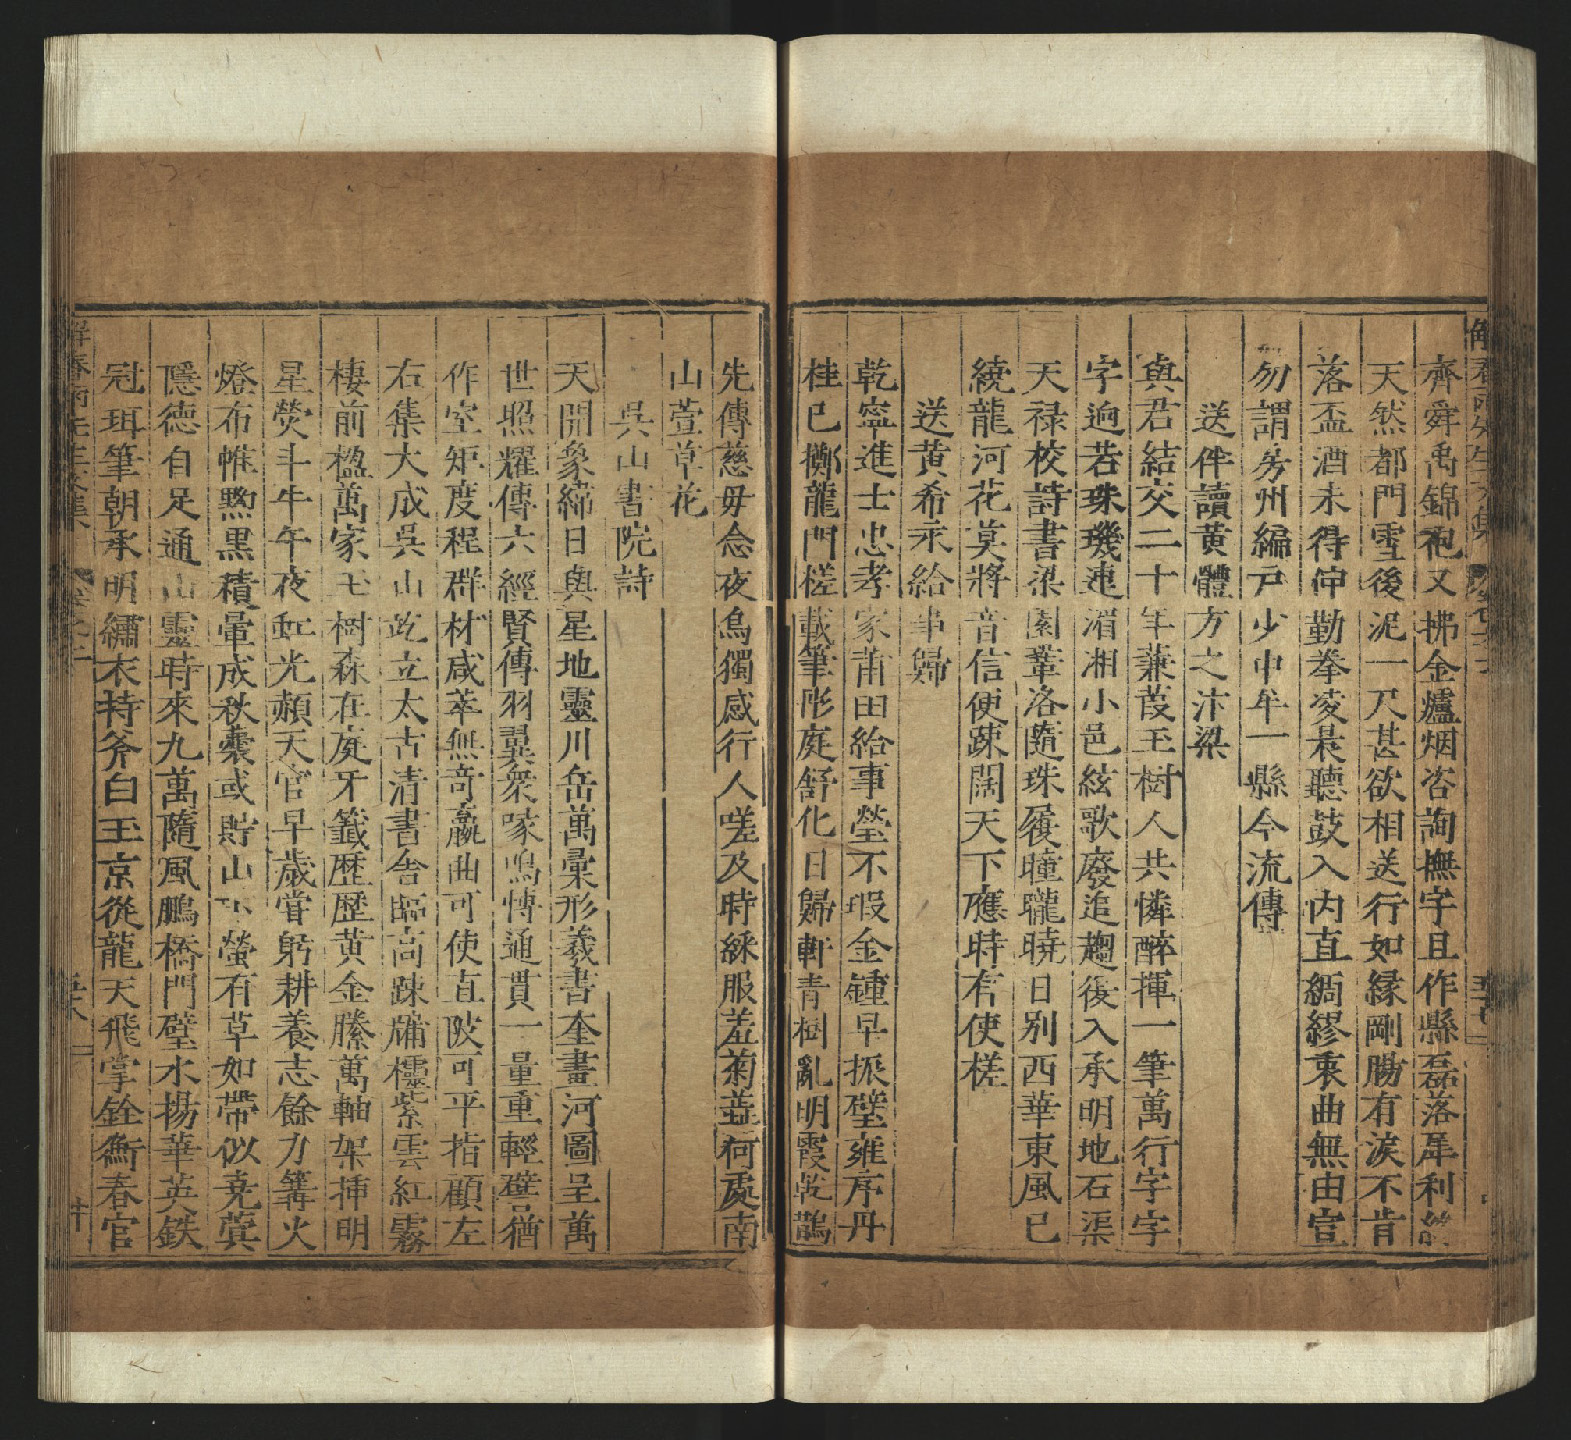 齊舜禹錦袍又拂金爐烟咨詢撫字且作縣磊落犀利
天然都門雪後泥一尺甚欲相送行如縁剛腸有淚不肯
落盃酒未得伸勤拳凌晨聽鼓入内直綢繆衷曲無由宣
勿謂房州編戸少中牟一縣今流傳
送伴讀黄體方之汴梁
與君結交二十年蒹葭玉樹人共憐醉揮一筆萬行字字
字逈若珠璣連湄湘小邑絃歌廢追趨後入承明地石渠
天禄校詩書梁園鞏洛隨珠履曈曨曉日别西華東風已
繞龍河花莫將音信便踈闊天下應時有使槎
送黄希永給事歸
乾寧進士忠孝家莆田給事瑩不瑕金鍾早振璧雍序丹
桂已擲龍門槎載筆彤庭舒化日歸軒青樹亂明霞乾鵲
先傳慈母念夜烏獨感行人嗟及時綵服羞菊蕋何處南
山萱草花
吳山書院詩
天開象緯日與星地靈川岳萬彚形羲書奎畫河圖呈萬
世照耀傳六經賢傳羽翼衆喙鳴慱通貫一量重輕譬猶
作室矩度程群材咸萃無竒贏曲可使直陂可平指顧左
右集大成吳山屹立太古清書舎臨高踈牖櫺紫雲紅霧
棲前楹萬家玉樹森在庭牙籤歷歷黄金縢萬軸架揷明
星熒斗牛午夜虹光頳天官早歲甞躬耕養志餘力篝火
燈布帷黝黒積暈成秋嚢或貯山螢有草如帶似堯蓂
隱德自足通山靈時來九萬隨風鵬橋門璧水揚華英鉄
冠珥筆朝承明繡衣持斧白玉京從龍天飛掌銓衡春官